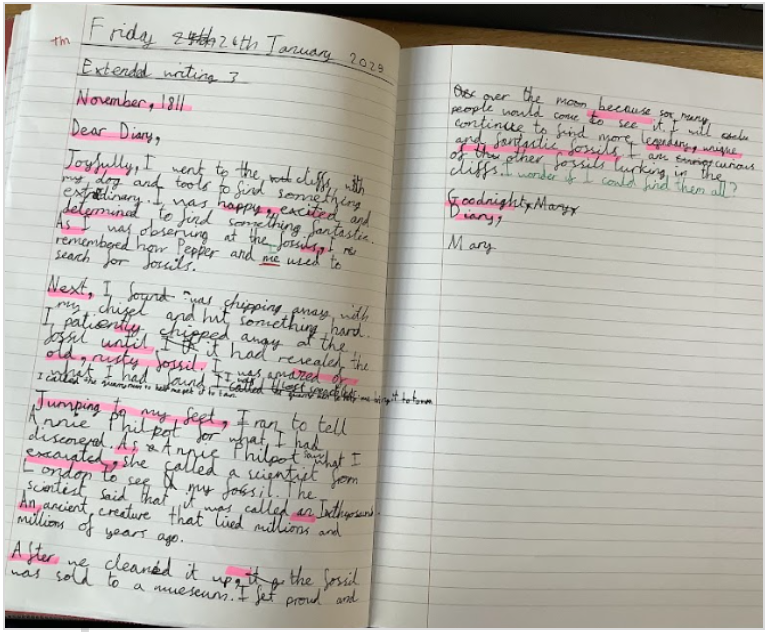 Tm
Friday 26th January 2029
Extendd writing 3
November, 1811
Dear Diary,
Joyfully, I went to the cliffs with
my dog and tools to find something
extrodinary. I was happy, excited and
determined to find something fantastic.
As I was observing at the fossils, I re
remembered how Pepper and me used to
search for fossils.
Next, I found was chipping away with
my chisel and hit something hard.
I patiently chipped away at the
fossil until it had revealed the
old, rusty fossil. I was amazed
what I had found. I called
I called the quarrymen to help me get it to
Jumping to my feet, I ran to tell
Annie Philpot for what I had
discovered. As Annie Philpot saw what I
excavated, she called a scientist from
London to see my fossil. The
scientest said that it was called an
An ancient creature that lived millions and
millions of years ago.
After we cleaned it up, the fossil
was sold to a museum. I felt proud and
over the moon because so many
people would come to see it. I will
continue to find more legendary, unique
and fantastic fossils. I am curious
of the other fossils lurking in the
cliffs. I wonder if I could find them all?
Goodnight Mary
Diary,
Mary